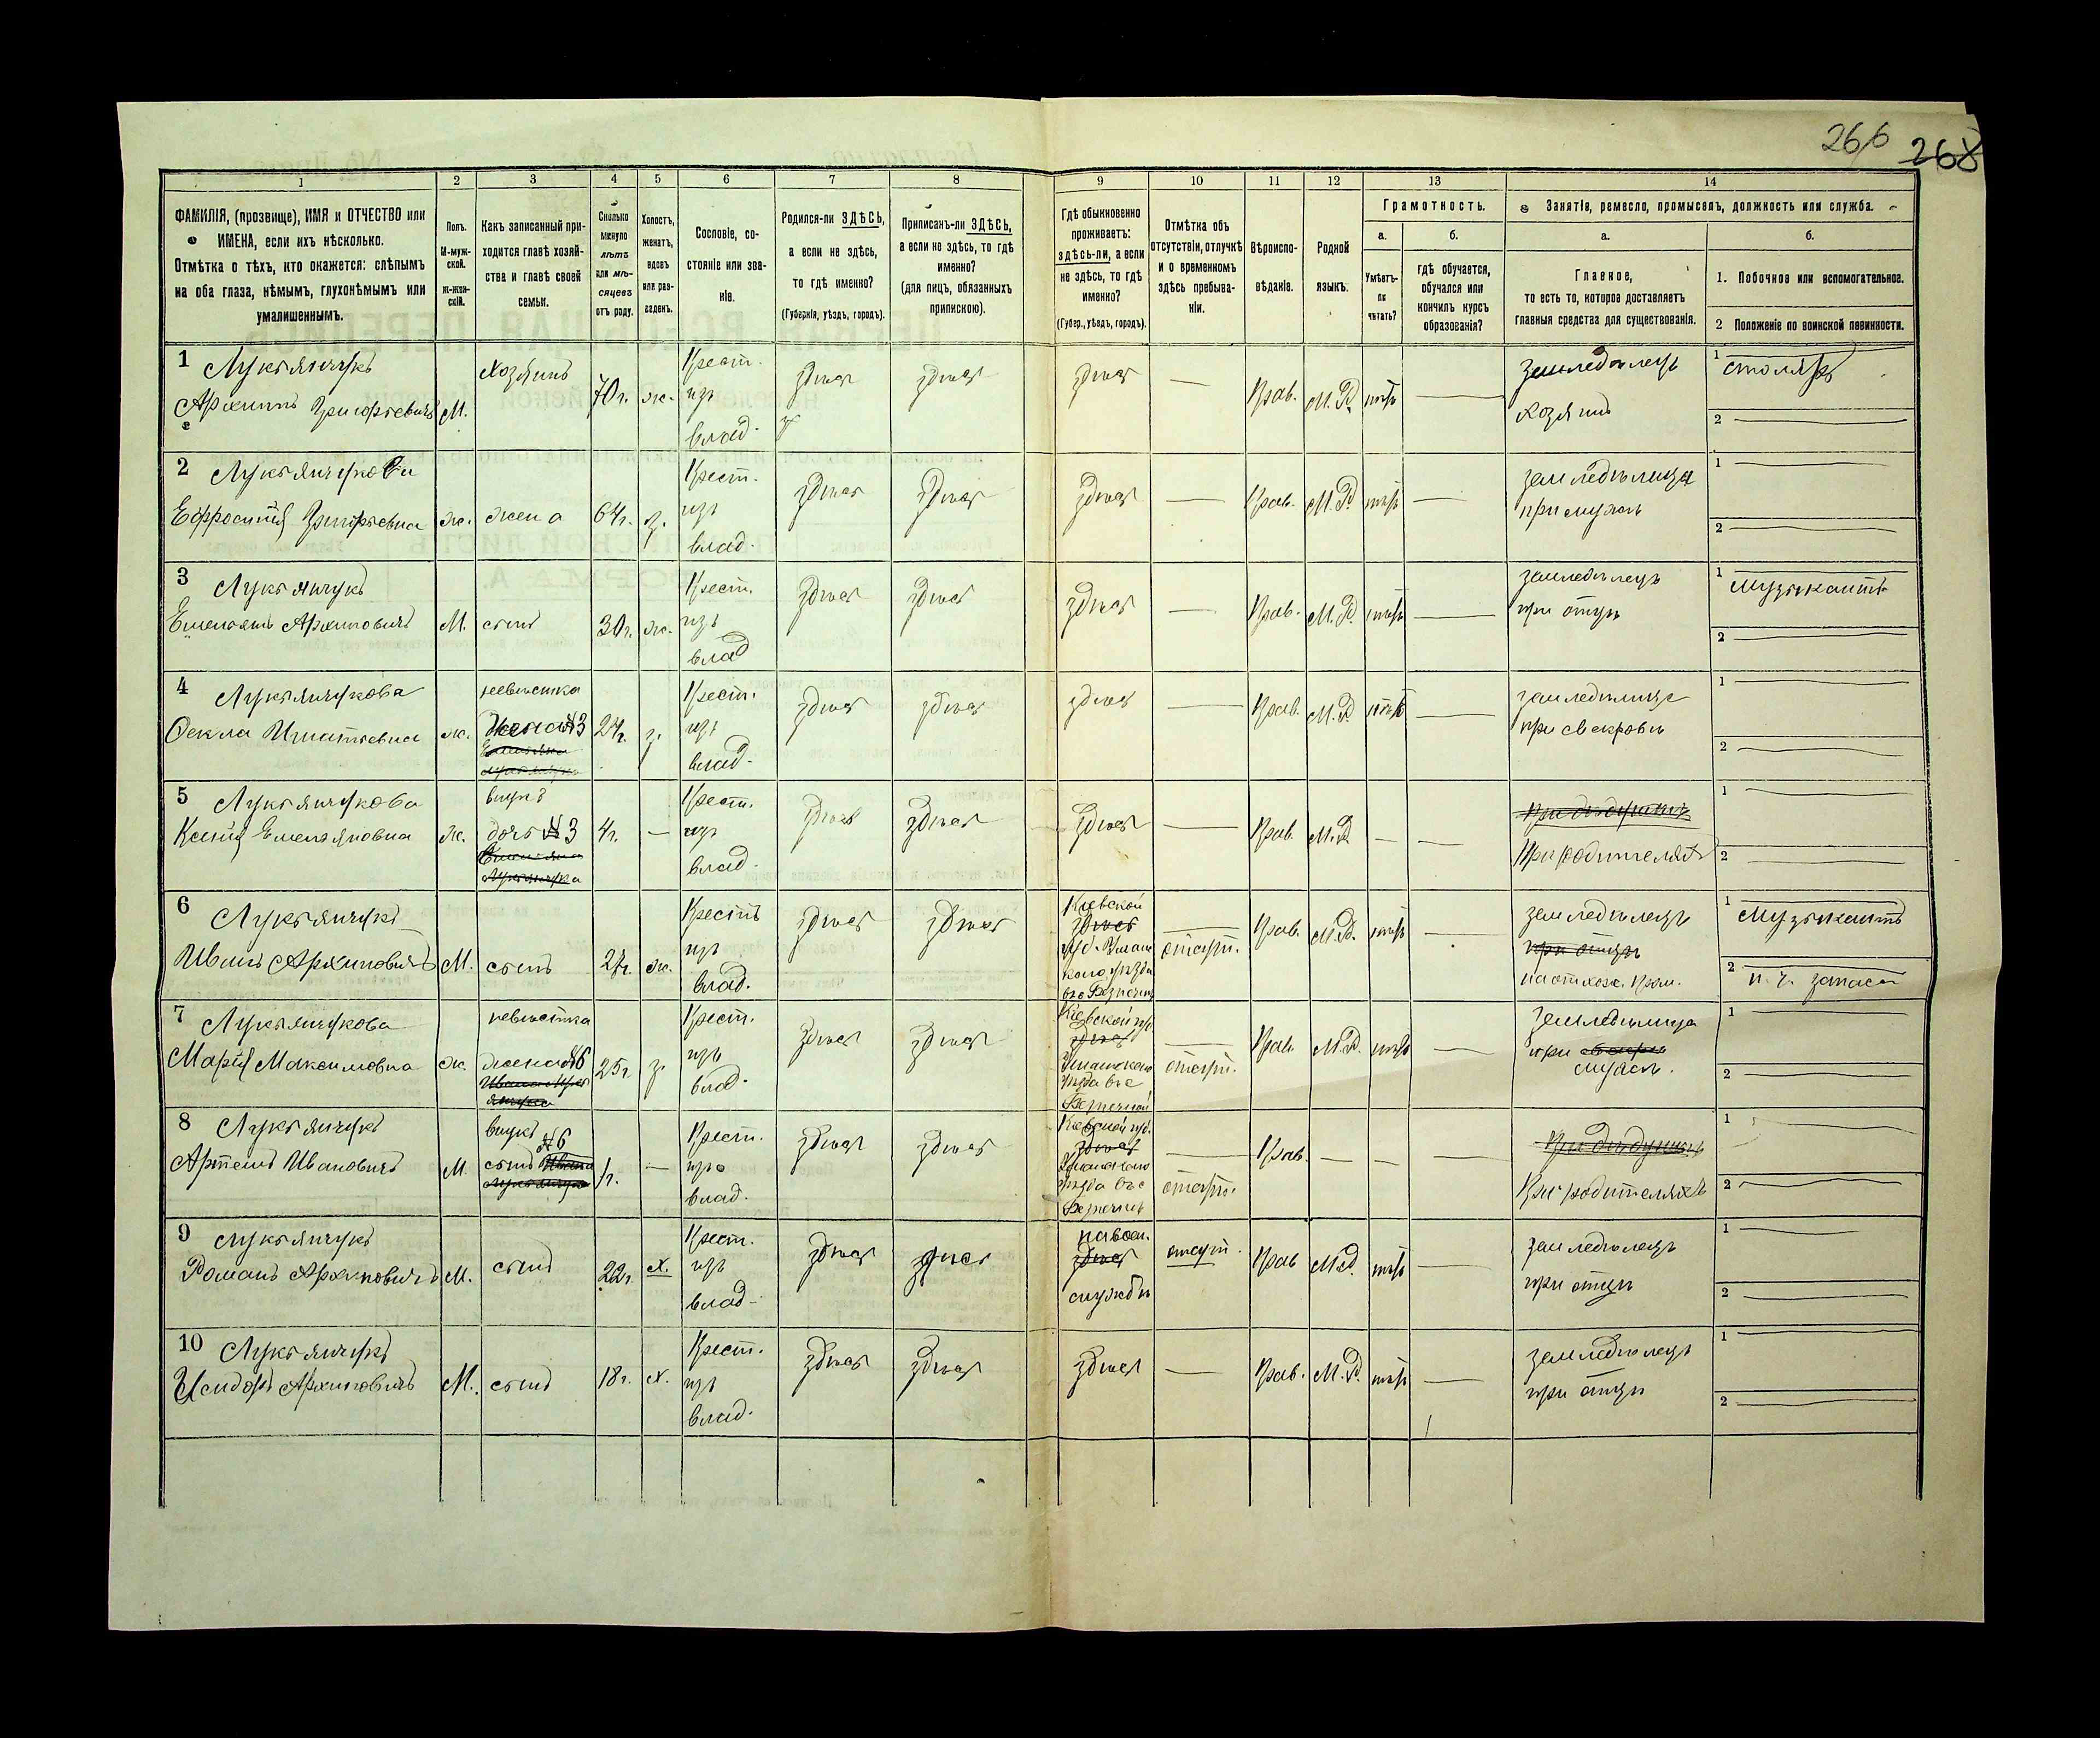 266 268
1 2 3 4 5 6 7 8 9 10 11 12 13 14
ФАМИЛІЯ, (прозвище), ИМЯ и ОТЧЕСТВО или
ИМЕНА, если ихъ нѣсколько.
Отмѣтка о тѣхъ, кто окажется: слѣпымъ
на оба глаза, нѣмымъ, глухонѣмымъ или
умалишеннымъ.
Полъ.
М-муж-
ской.
ж-жен-
скій.
Какъ записанный при-
ходится главѣ хозяй-
ства и главѣ своей
семьи.
Сколько
минуло
лѣтъ
или мѣ-
сяцевъ
отъ роду.
Холостъ,
женатъ,
вдовъ
или раз-
веденъ.
Сословіе, со-
стояніе или зва-
ніе.
Родился-ли ЗДѢСЬ,
а если не здѣсь,
то гдѣ именно?
(Губернія, уѣздъ, городъ).
Приписанъ-ли ЗДѢСЬ,
а если не здѣсь, то гдѣ
именно?
(для лицъ, обязанныхъ
припискою).
Гдѣ обыкновенно
проживаетъ:
здѣсь-ли, а если
не здѣсь, то гдѣ
именно?
(Губер., уѣздъ, городъ).
Отмѣтка объ
отсутствіи, отлучкѣ
и о временномъ
здѣсь пребыва-
ніи.
Вѣроиспо-
вѣданіе.
Родной
языкъ.
Грамотность.
а.
Умѣетъ-
ли
читать?
б.
гдѣ обучается,
обучался или
кончилъ курсъ
образованія?
Занятія, ремесло, промыселъ, должность или служба.
а.
Главное,
то есть то, которое доставляетъ
главныя средства для существованія.
б.
1. Побочное или вспомогательное.
2 Положеніе по воинской повинности.
1 Лукьянчукъ
Архипъ Григорьевичъ М. Хозяинъ 70 г. ж. Крест. изъ влад. здѣсь здѣсь здѣсь — Прав. М.Р. нѣтъ —
земледѣлецъ
хозяинъ
1 столяръ
2 —
2 Лукьянчукова
Ефросинія Григорьевна ж. жена 64 г. з. Крест. изъ влад. здѣсь здѣсь здѣсь — Прав. М.Р. нѣтъ —
земледѣлица
при мужѣ
1 —
2 —
3 Лукьянчукъ
Емельянъ Архиповичъ М. сынъ 30 г. ж. Крест. изъ влад здѣсь здѣсь здѣсь — Прав. М.Р. нѣтъ —
земледѣлецъ
при отцѣ
1 музыкантъ
2 —
4 Лукьянчукова
Фекла Игнатьевна ж. невѣстка жена №3 24 г. з. Крест. изъ влад. здѣсь здѣсь здѣсь — Прав. М.Р. нѣтъ —
земледѣлица
при свекровѣ
1 —
2 —
5 Лукьянчукова
Ксенія Емельяновна ж. внукъ дочь №3 4 г. — Крест. изъ влад. здѣсь здѣсь здѣсь — Прав М.Р. — —
при дѣдушкѣ
При родителяхъ
1 —
2 —
6 Лукьянчукъ
Иванъ Архиповичъ М. сынъ 27 г. ж. Крестъ изъ влад. здѣсь здѣсь
Кіевской
здѣсь
отсут. Прав. М.Р. нѣтъ —
земледѣлецъ
при отцѣ
на отхож. пром.
1 Музыкантъ
2 н. ч. запаса
7 Лукьянчукова
Марія Максимовна ж. невѣстка жена №6 25 г. з. Крест. изъ влад. здѣсь здѣсь
Кіевской губ.
здѣсь
Уманскаго
уѣзда
отсут. Прав. М.Р. нѣтъ —
земледѣлица
при
мужѣ.
1 —
2 —
8 Лукьянчукъ
Артемъ Ивановичъ М. внукъ сынъ №6 1 г. — Крест. изъ влад. здѣсь здѣсь
Кіевской губ.
здѣсь
Уманскаго
уѣзда
отсут. Прав. — — —
При дѣдушкѣ
При родителяхъ
1 —
2 —
9 Лукьянчукъ
Романъ Архиповичъ М. сынъ 22 г. х. Крест. изъ влад. здѣсь здѣсь
на воен.
здѣсь
службѣ
отсут. Прав М.Р. нѣтъ —
земледѣлецъ
при отцѣ
1 —
2 —
10 Лукьянчукъ
Исидоръ Архиповичъ М. сынъ 18 г. х. Крест. изъ влад. здѣсь здѣсь здѣсь — Прав. М.Р. нѣтъ —
земледѣлецъ
при отцѣ
1 —
2 —